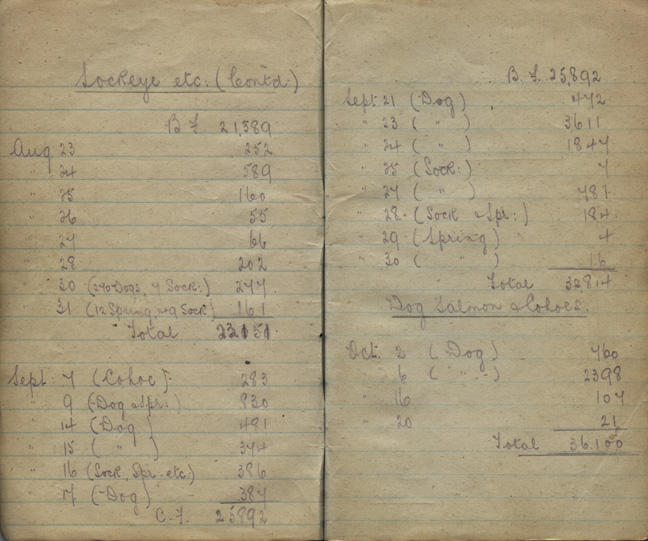 Sockeye etc. (Contd)
B f 21,389
Aug 23 252
" 24 589
" 25 160
" 26 55
" 27 66
" 28 202
" 30 (270 Dogs, 7 Sock.) 277
" 31 (12 Spring, 149 Sock) 161
Total 23151
Sept 7 (Cohoe) 283
" 9 (Dog & Spr.) 830
" 14 (Dog) 481
" 15 ( " ) 374
" 16 (Sock, Spr. etc.) 386
" 17 (Dog) 387
C.f. 25892
B f. 25,892
Sept 21 (Dog) 472
" 23 ( " ) 3611
" 24 ( " ) 1847
" 25 (Sock.) 7
" 27 ( " ) 781
" 28. (Sock & Spr.) 184
" 29 (Spring) 4
" 30 ( " ) 16
Total 32814
Dog Salmon & Cohoes.
Oct. 2 (Dog) 760
" 6 ( " ) 2398
" 16 107
" 20 21
Total 36.100